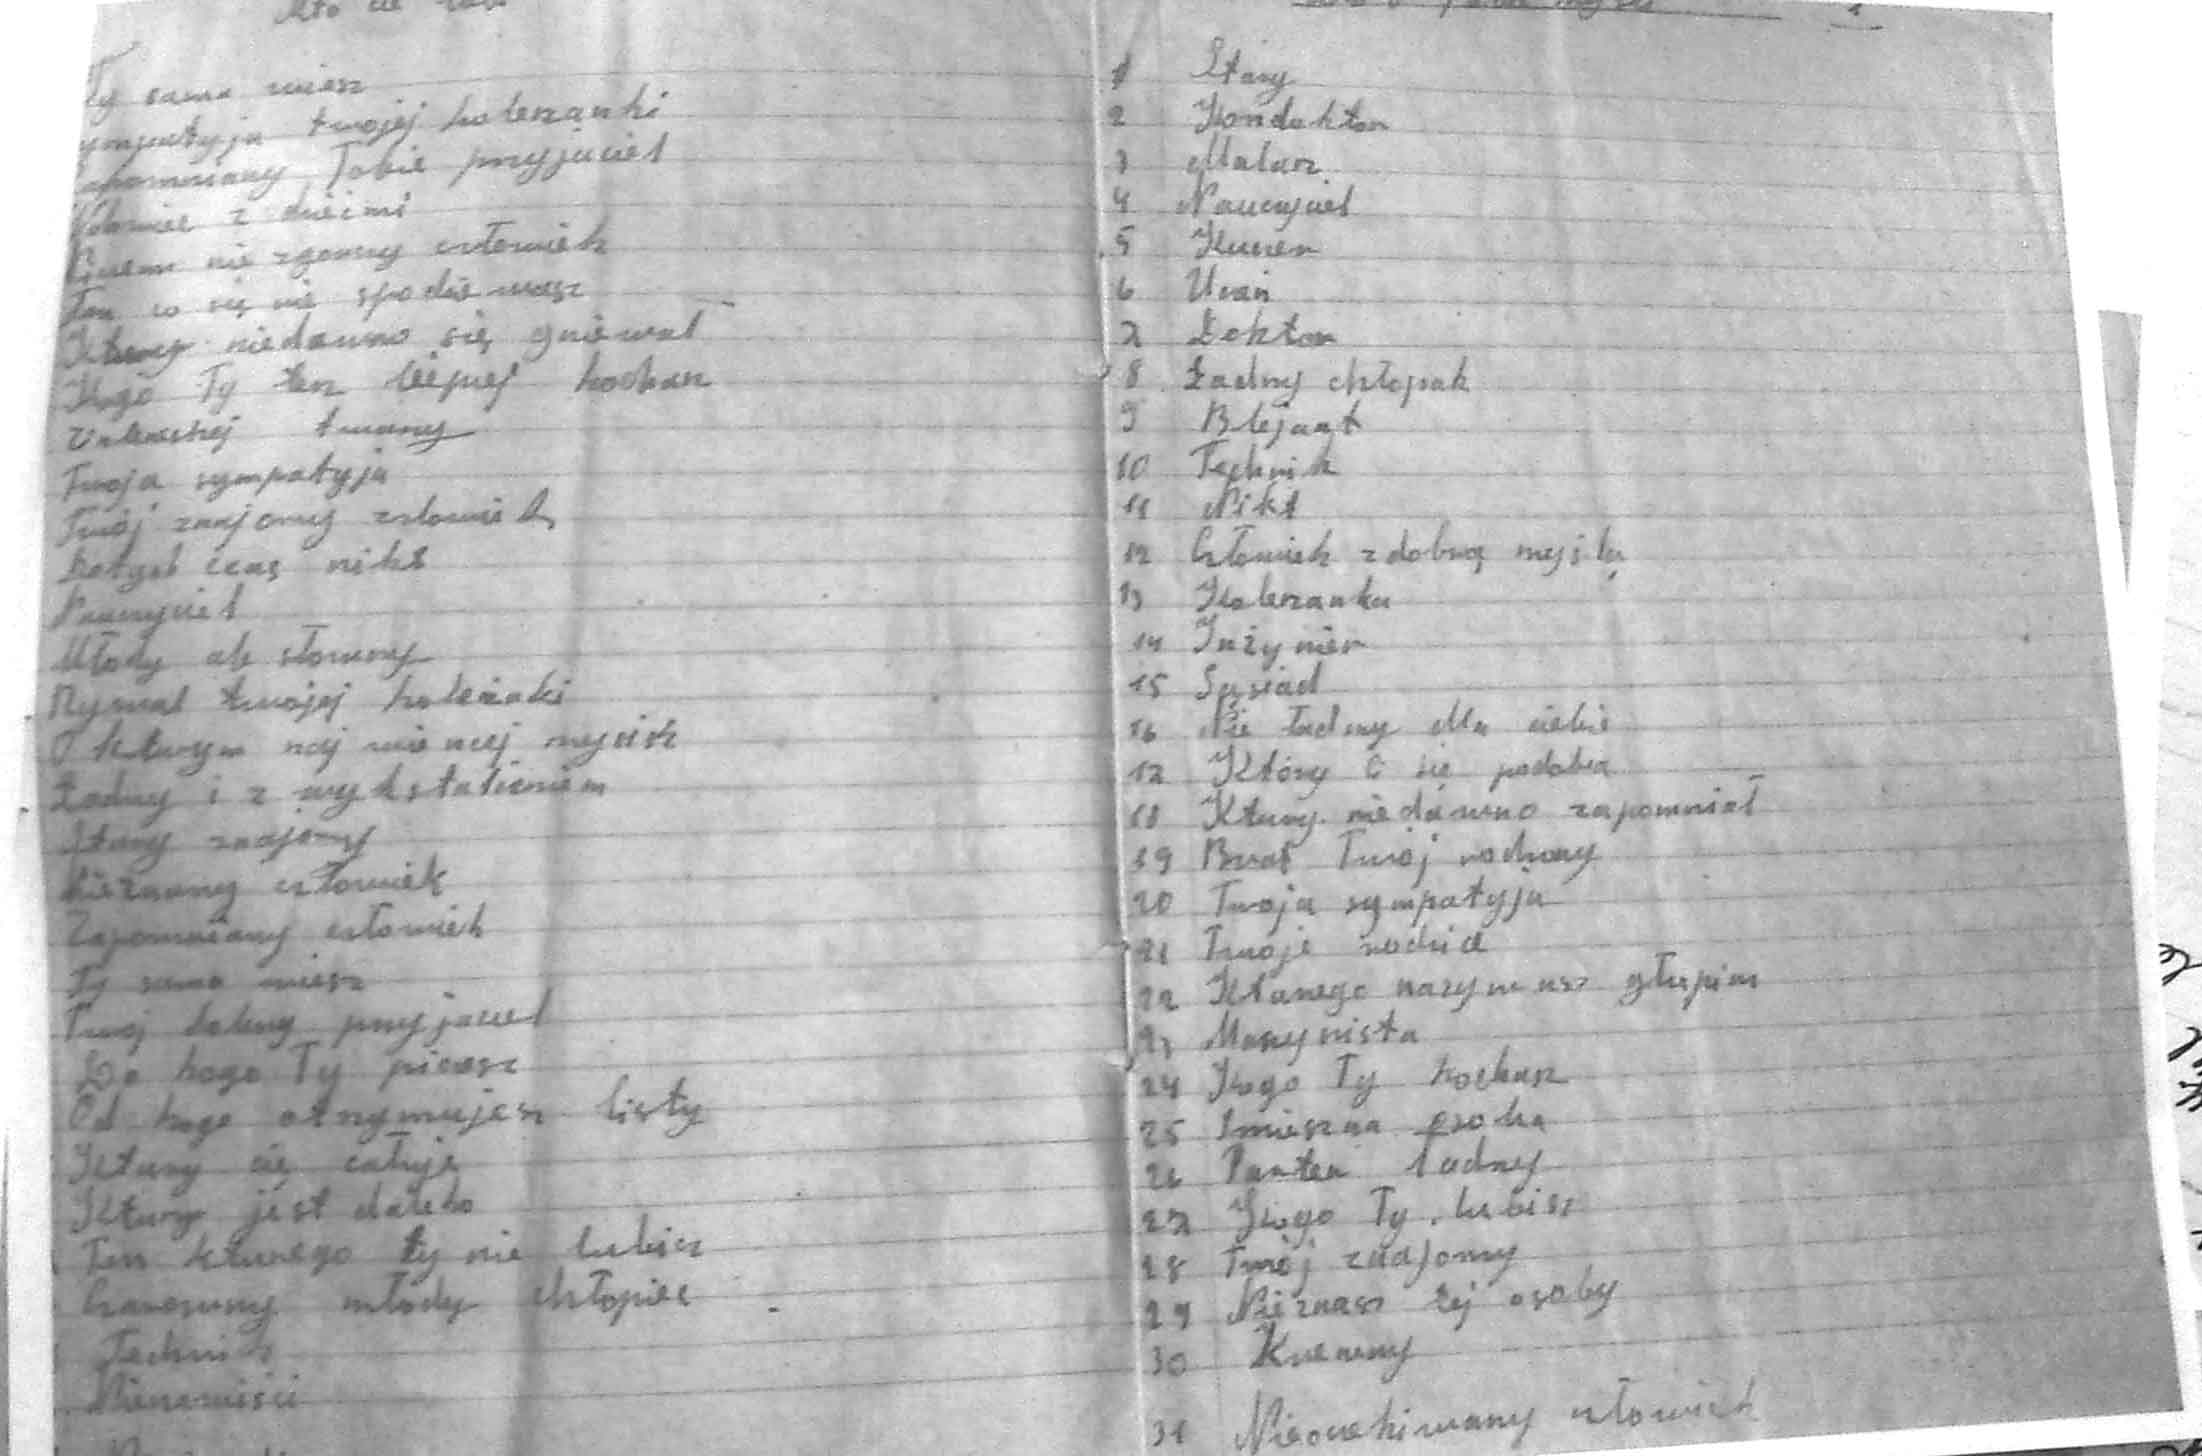 Kto
Ty sama wiesz
sympatyja twojej koleszanki
zapomniany Tobie przyjaciel
Wdowiec z dziećmi
nie zgorszy człowiek
Ten co się nie spodziewasz
Ktury niedawno się gniewał
Kogo Ty ten lepiej kochasz
twarzy
Twoja sympatyja
Twój znajomy człowiek
Dotych czas nikt
Nauczyciel
Młody ale słowny
Rywal twojej koleżaki
O kturym naj wiencej myslisz
Ładny i z wykstałceniem
Stary znajomy
Nieznany człowiek
Zapomniany człowiek
Ty sama wiesz
Twoj dobry przyjaciel
Do kogo Ty piszesz
Od kogo otrzymujesz listy
Ktury cię całuje
Ktury jest daleko
Ten kturego ty nie lubisz
młody chłopiec
Technik
Nienawiści
1 Stary
2 Konduktor
3 Malarz
4 Nauczyciel
5 Kuzen
6 Uczeń
7 Doktor
8 Ładny chłopak
9 Blejgat
10 Technik
11 Nikt
12 Człowiek z dobrą myślą
13 Koleszanka
14 Inżynier
15 Sąsiad
16 Nie ładny dla ciebie
17 Który Ci się podoba
18 Ktury niedawno zapomniał
19 Brat Twój rodzony
20 Twoja sympatyja
21 Twoje rodzice
22 Kturego nazywasz głupim
23 Maszynista
24 Kogo Ty kochasz
25 Smieszna osoba
26 Parten ładny
27 Kogo Ty lubisz
28 Twój znajomy
29 Nie znasz tej osoby
30 Krewny
31 Nieoczekiwany człowiek